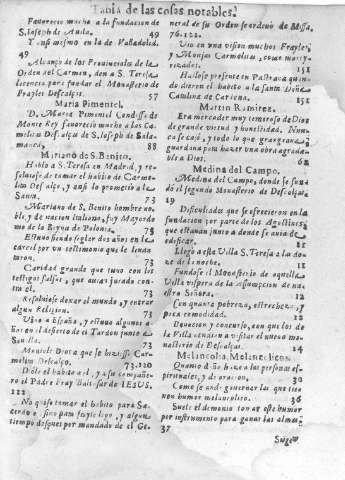 Tabla de las cosas notables.
Favorecio mucho a la fundacion de
S. Ioseph de Auila. 49
Y ansi mesmo en la de Valladolid.
49
Alcanço de los Prouinciales de la
Orden del Carmen, den a S. Teresa
licencia para fundar el Monasterio de
Frayles Descalços. 57
Maria Pimentel.
D. Maria Pimentel Condessa de
Monte Rey fauorecio mucho a las Carmelitas
Descalças de S. Ioseph de Salamanca,
88
Mariano de S. Benito.
Hablo a S. Teresa en Madrid, y resoluiose
de tomar el habito de Carmelita
Descalço, y ansi lo prometio a la
Santa. 73
Mariano de S. Benito hombre noble,
y de nacion Italiano, fuy Mayordomo
de la Reyna de Polonia. 73
Estuuo siendo seglar dos años en la
carcel por un testimonio que le leuantaron.
73
Caridad grande que tuuo con los
testigos falsos, que auian jurado contra
el. 73
Resoluiose dexar el mundo, y entrar
alguna Religion. 73
Vino a España, y estuuo algunos años
en el desierto de el Tardon junto a
Seuilla. 73
Mouiole Dios a que se hiziesse Carmelita
Descalço. 73-120
Diole el habito a el, y a su compañero
el Padre Fray Baltasar de IESVS.
122
No quiso tomar el habito para Sacerdote
sino para frayle lego, y algun
tiempo despues por mandado de el General
de su Orden se ordenò de Missa,
76.122.
Vio en una vision muchos Frayles
y Monjas Carmelitas, como martyrizados.
151
Hallose presente en Pastrana quando
dieron el habito a la santa Doña
Catalina de Cardona. 151
Martin Ramirez.
Era mercader muy temeroso de Dios
de grande virtud y honestidad. Nunca
se casò, y todo lo que grangeaua
guardaua para hazer una obra agradable
a Dios. 68
Medina del Campo.
Medina del Campo, donde se fundò
el segundo Monasterio de Descalças
19
Dificultades que se ofrecieron en la
fundacion por parte de los Agustinos
que estauan junto a donde se auia de
edificar. 11
Llego a esta Villa S. Teresa a las doze
de la noche. 12
Fundose el Monasterio de aquella
Villa vispera de la Assumpcion de nuestra
Señora. 12
Con quanta pobreza, estrechez, y
poca comodidad. 12
Deuocion y concurso, con que los de
la Villa acudian a visitar el nueuo monasterio
de Descalças. 14
Melancolia, Melancolicos.
Quanto daño haze a las personas espirituales,
y de oracion. 30
Como se ande gouernar las que tienen
humor melancolico. 36
Suele el demonio tomar esse humor
por instrumento para ganar las almas.
37
Sugetar